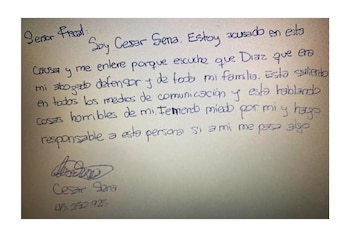 Señor Fiscal:
Soy Cesar Sena. Estoy acusado en esta
causa y me entere porque escuche que Diaz que era
mi abogado defensor y de toda mi familia. Esta saliendo
en todos los medios de comunicación y esta hablando
cosas horribles de mi. Temendo miedo por mi y hago
responsable a esta persona si a mi me pasa algo
Cesar Sena